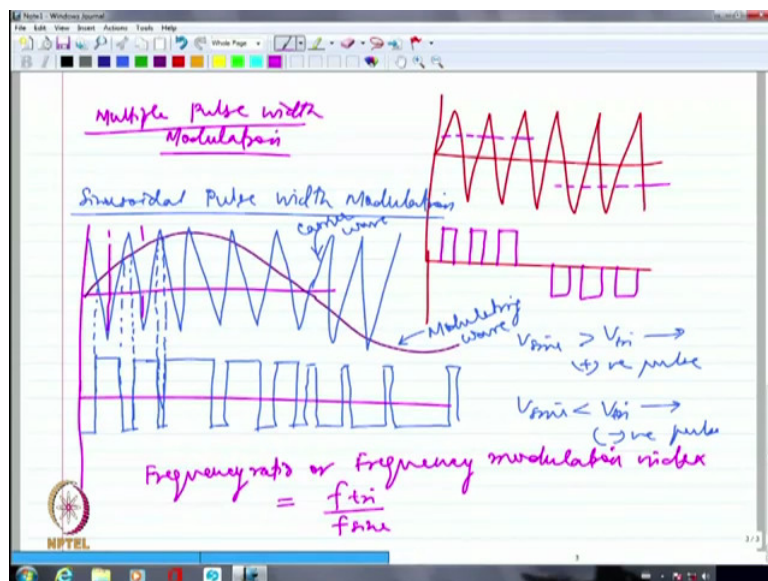 Note1 - Windows Journal
File Edit View Insert Actions Tools Help
Whole Page
B I
Multiple Pulse width
Modulation
Sinusoidal Pulse width Modulation
Carrier
wave
Modulating
wave
Vsine > Vtri →
(+)ve pulse
Vsine < Vtri →
(-)ve pulse
Frequency ratio or Frequency modulation index
= ftri
fsine
NPTEL
3/3
3